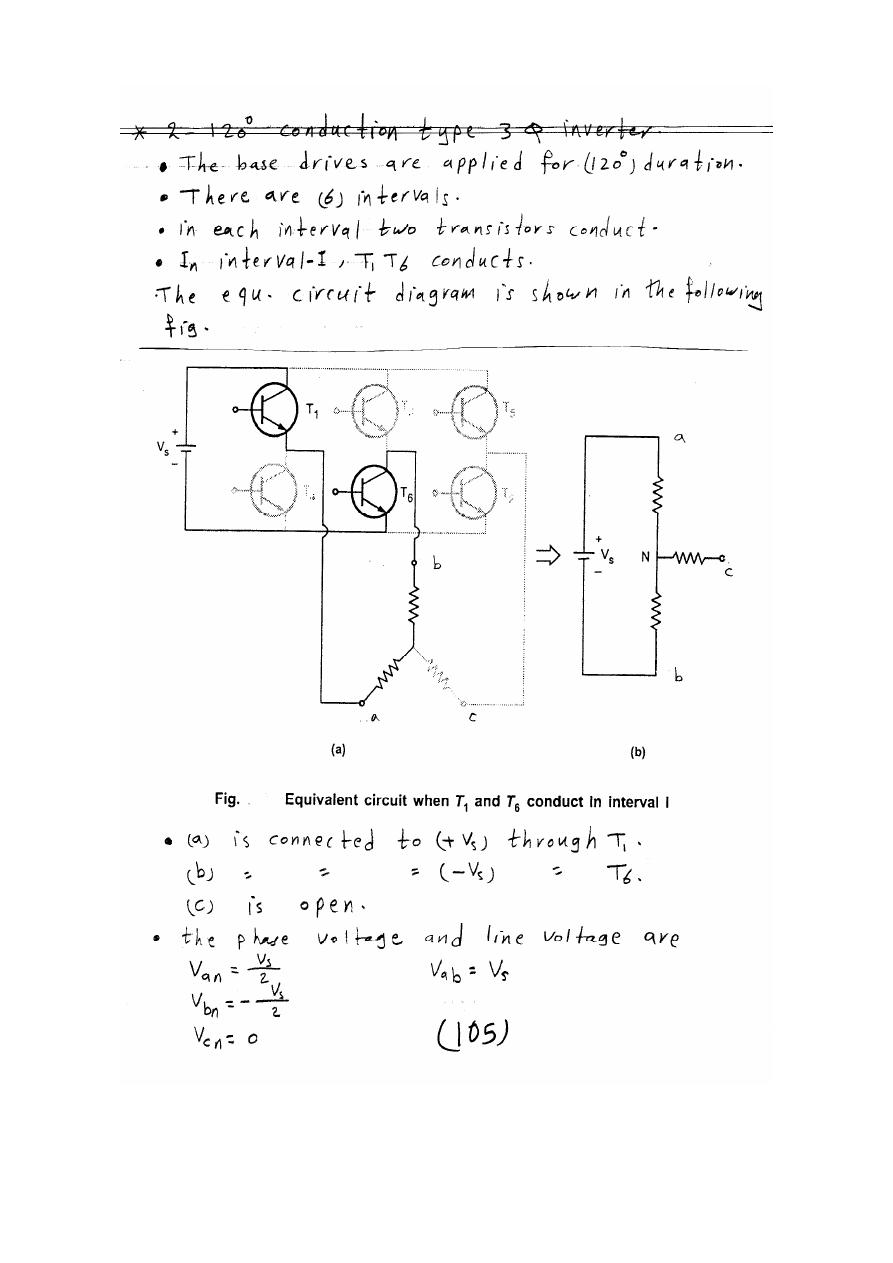 * 2- 120° conduction type 3 φ inverter.
• The base drives are applied for (120°) duration.
• There are (6) intervals.
• in each interval two transistors conduct.
• In interval-I, T1 T6 conducts.
The equ. circuit diagram is shown in the following
fig.
T1 T5
a
+
Vs
−
T6
+
Vs N
−
c
b
b
a c
(a) (b)
Fig. Equivalent circuit when T1 and T6 conduct in interval I
• (a) is connected to (+Vs) through T1.
(b) = = = (−Vs) = T6.
(c) is open.
• the phase voltage and line voltage are
Van = Vs/2 Vab = Vs
Vbn = − Vs/2
Vcn = 0 (105)